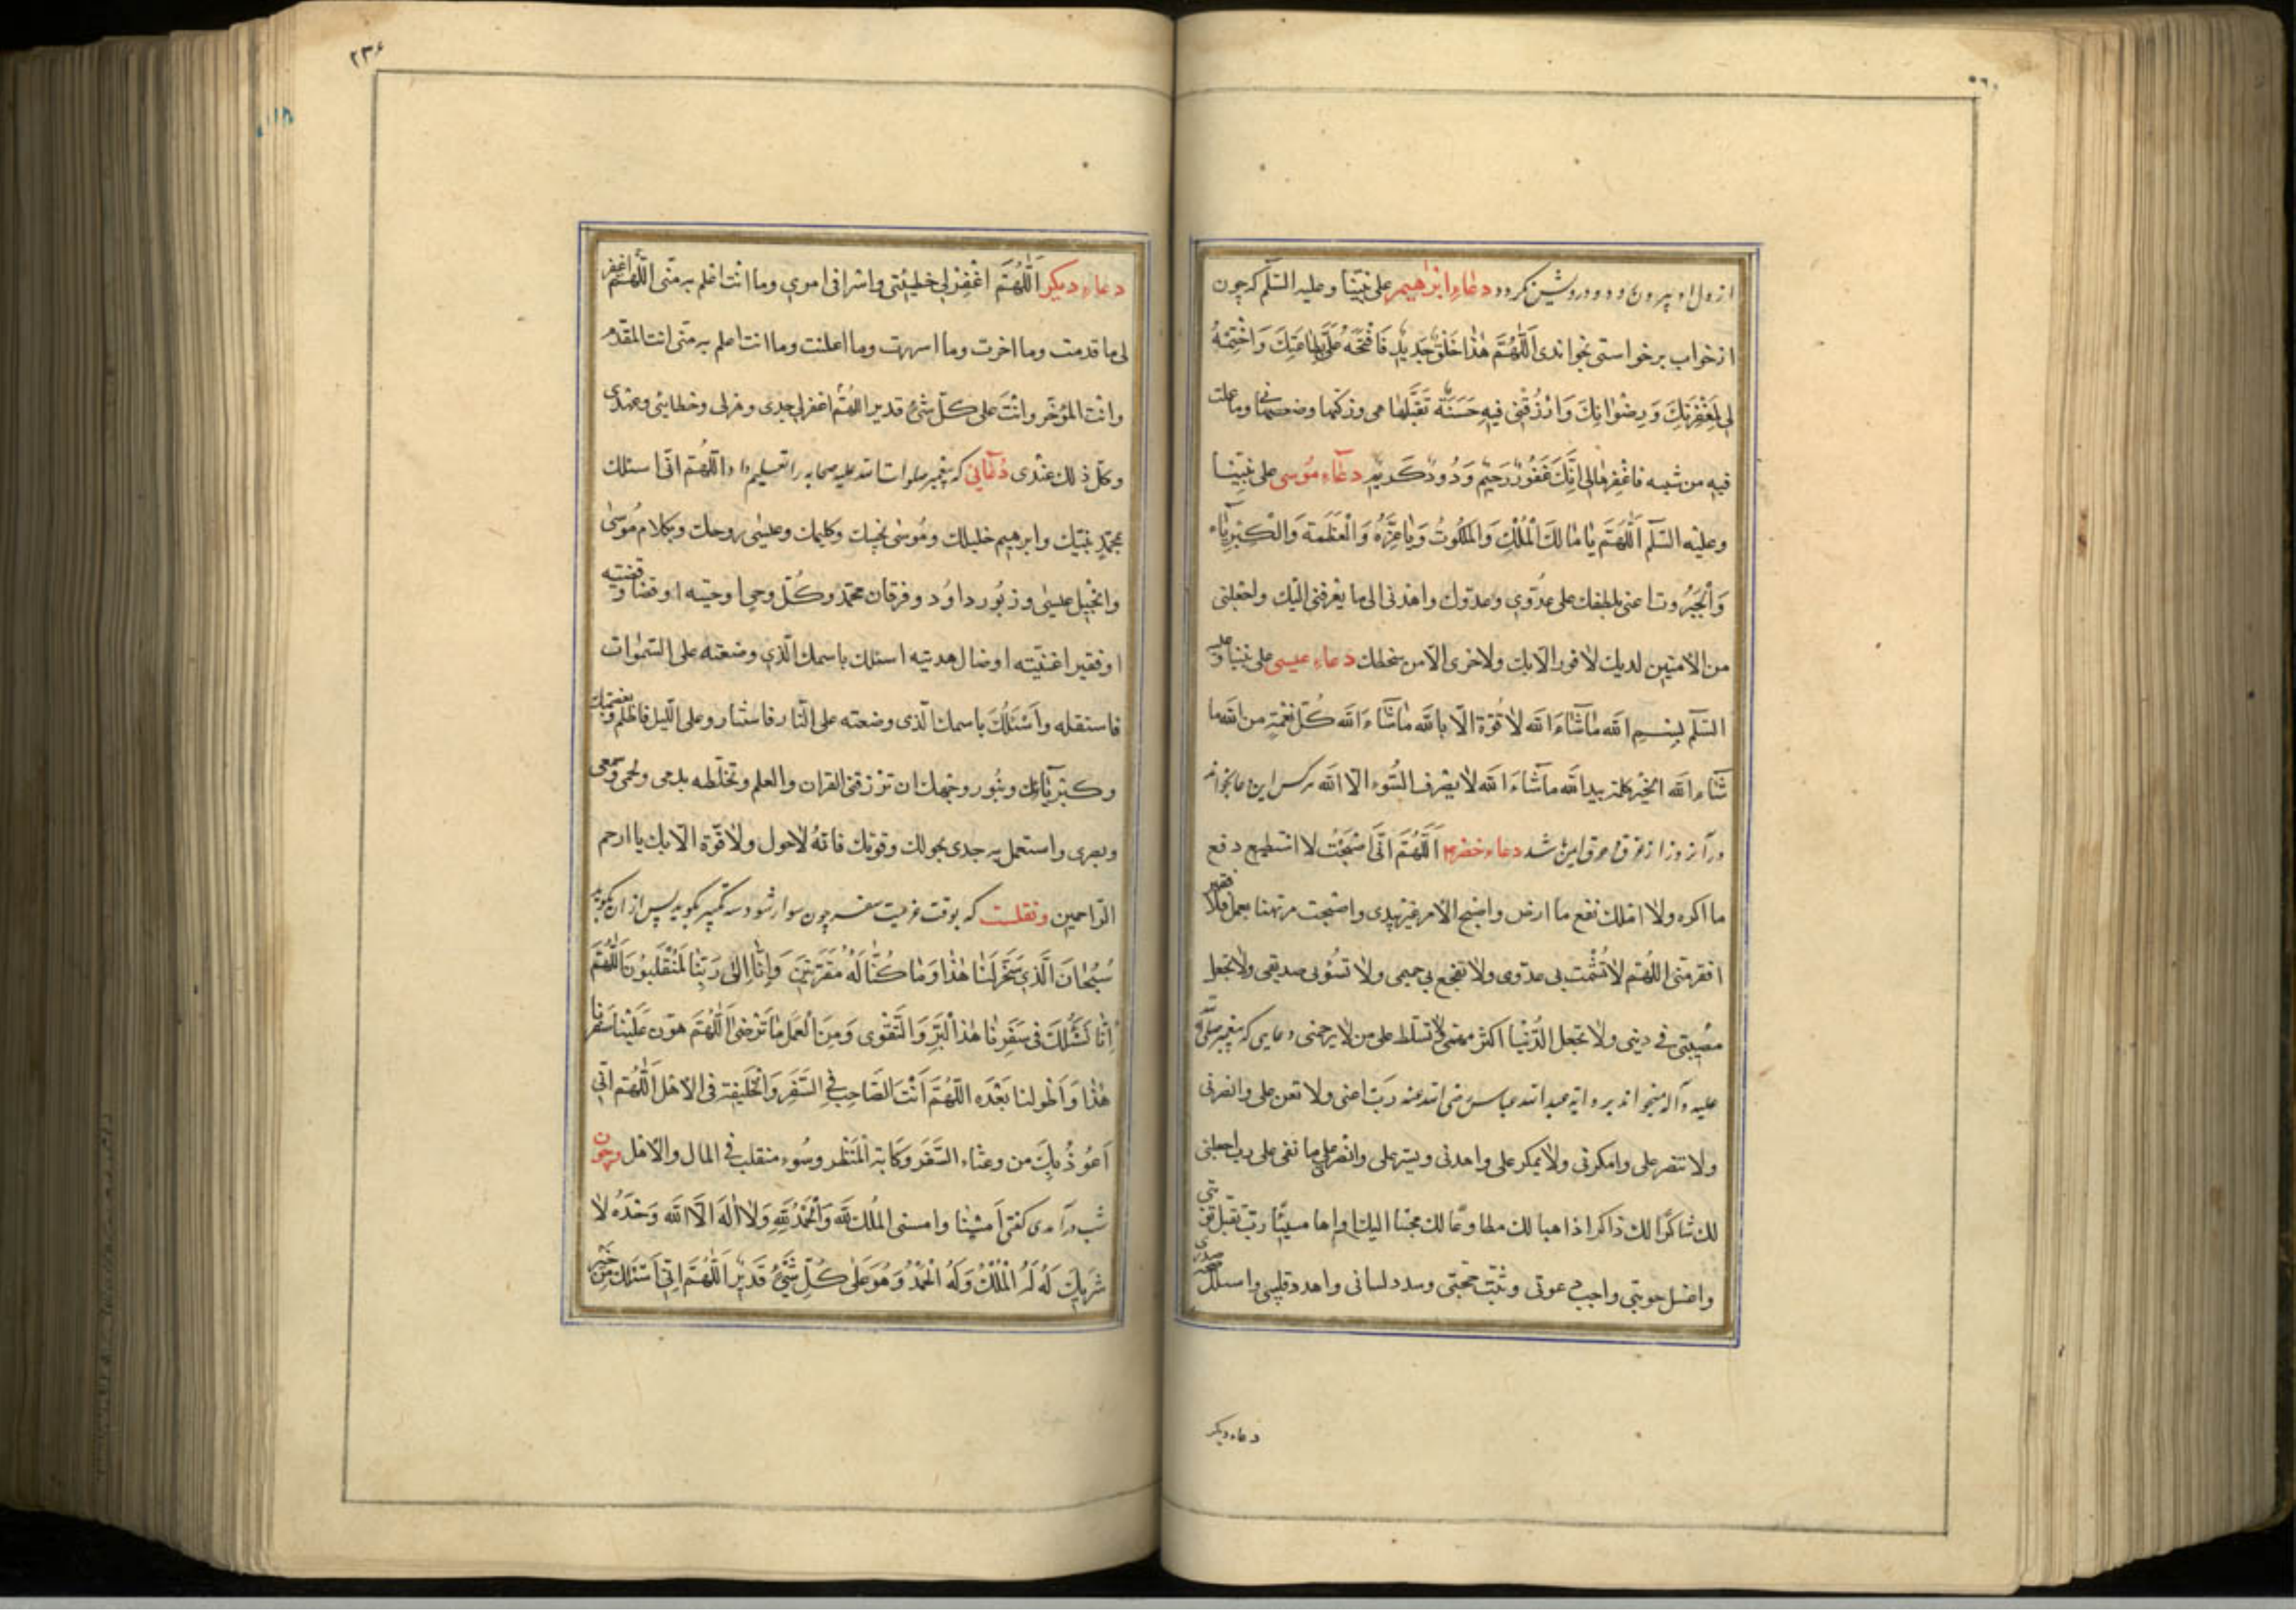 از دل او بیرون رود و درویش نگردد دعاء ابرٰهیم علی نبیّنا و علیه السّلم که چون
از خواب برخواستی بخواندی اَللّٰهُمَّ هٰذا خَلْقٌ جَدیدٌ فَافْتَحْهُ عَلَیَّ بِطاعَتِكَ وَاخْتِمْهُ
لی بِمَغْفِرَتِكَ وَرِضْوانِكَ وَارْزُقْنی فیهِ حَسَنَةً تَقَبَّلْها منی وزکّها وضعفها وما عملت
فیه من سیئه فاغْفِرْها لی اِنَّكَ غَفُورٌ رَحیمٌ وَدُودٌ کَریم دعاء مُوسی علی نبیّنا
وعلیه السّلم اَللّٰهُمَّ یا مالِكَ الْمُلْكِ وَالْمَلَكُوتِ وَیا عِزَّةُ وَالْعَظَمَة وَالْکِبْرِیاء
وَالْجَبَرُوت اعنی بلطفك علی عدُوّی وعدوّك واهدنی الی ما یقرّبنی الیك واجعلنی
من الآمنین لدیك لا فوز الّا بك ولا خزی الّا من سخطك دعاء عیسی علی نبینا وعلیه
السّلم بِسْمِ الله ماشاءَ الله لا قُوّة الّا بالله ماشاءَ الله کُلّ نعْمَةٍ من الله ما
شاءَ الله الخیر کلّه بید الله ماشاءَ الله لا یصْرف السّوء الّا الله هرکس این دعا بخواند
در آن روز از غرق و حرق ایمن شد دعاء خضر اَللّٰهُمَّ اِنّی اَصْبَحْتُ لا استطیع دفع
ما اکره ولا املك نفع ما ارجو واصبح الامر بغیر یدی واصبحت مرتهنا بعملی فلا فقیر
افقر منّی اللّهُمّ لا تُشْمت بی عدوّی ولا تفجع بی حمیمی ولا تسُؤ بی صدیقی ولا تجعل
مصُیبتی فی دینی ولا تجعل الدّنْیا اکثر همّی ولا تسلّط علی من لا یرحمنی دعایی که پیغمبر صلّی الله
علیه وآله میخواند بروایة عبد الله عباس رضی الله عنه ربّ اعنی ولا تعن علی وانصرنی
ولا تنصر علی وامکرنی ولا یمکر علی واهدنی ویسّر علی وانصرنی علی ما بغی علی رب اجعلنی
لك شاکرًا لك ذاکرا ذاهبا لك مطاوعًا لك مجنبا الیك اواها منیبًا ربّ تقبّل توبتی
واغسل حوبتی واجب دعوتی وثبّت حجتی وسدد لسانی واهد قلبی واسلل سخیمة صدری
دعاء دیکر
٢٣٤
دعاء دیکر اَللّٰهُمَّ اغْفِرْ لی خطیئتی واسرافی اموری وما انت اعلم به منّی اللّهُمّ اغفر
لی ما قدمت وما اخرت وما اسررت وما اعلنت وما انت اعلم به منّی انت المقدّم
وانت المؤخّر وانتَ علی کلّ شیءٍ قدیر اللهُمّ اغفر لی جدی وهزلی وخطایئی وعمدی
وکلّ ذلك عندی دُعائی که پیغمبر صلوات الله علیه صحابه را تعلیم داد اللّهُمّ انّی اسئلك
بمحمّدٍ نبیّك وابرهیم خلیلك ومُوسی نجیّك وکلیمك وعیسی روحك وبکلام مُوسی
وانجیل عیسی وزبُور داوُد وفرقان محمّد وکُلّ وحی اوحیته او قضاء قضیته
او فقیر اغنیته او ضال هدیته اسئلك باسمك الّذی وضعته علی السّمٰوات
فاستقله واَسْئَلُكَ باسمك الّذی وضعته علی النّار فاستنار وعلی اللّیل فاظلم وبعظمتك
وکبریائك وبنُور وجهك ان ترزقنی القران والعلم وتخلطه بدمی ولحمی وسمعی
وبصری واستعمل به جسدی بحولك وقوتك فانّه لا حول ولا قوّة الّا بك یا ارحم
الرّاحمین ونقلست که بوقت عزیمت سفر چون سوار شود سه تکبیر بکوید پس از ان بکوید
سُبْحانَ الَّذی سَخَّرَ لَنا هٰذا وَما کُنّا لَهُ مُقْرِنینَ وَاِنّا اِلٰی رَبِّنا لَمُنْقَلِبُونَ اَللّٰهُمَّ
اِنّا نَسْئَلُكَ فی سَفَرِنا هٰذا الْبِرَّ وَالتَّقْوی وَمِنَ الْعَمَلِ ما تَرْضیٰ اَللّٰهُمَّ هوّن عَلَیْنا سَفَرنا
هٰذا وَاَطْولنا بَعْدَه اللّهُمَّ اَنْتَ الصّاحِبُ فی السَّفَرِ وَالْخَلیفة فی الاَهْل اَللّٰهُمّ اِنّی
اَعُوذُ بِكَ من وعثاء السّفَر وکابة الْمَنْظر وسُوء منقلب فی المال والاهل وچون
شب درآمدی کفتی اَمْسَیْنا وامسی المُلك لِلّه وَالْحَمْدُ لِلّهِ وَلا اِلٰهَ اِلَّا الله وَحْدَهُ لا
شَریكَ لَهُ لَهُ الْمُلْكُ وَلَهُ الْحَمْدُ وَهُوَ عَلٰی کُلِّ شَیْءٍ قَدیرٌ اَللّٰهُمَّ اِنّی اَسْئَلُكَ مِنْ خَیْر